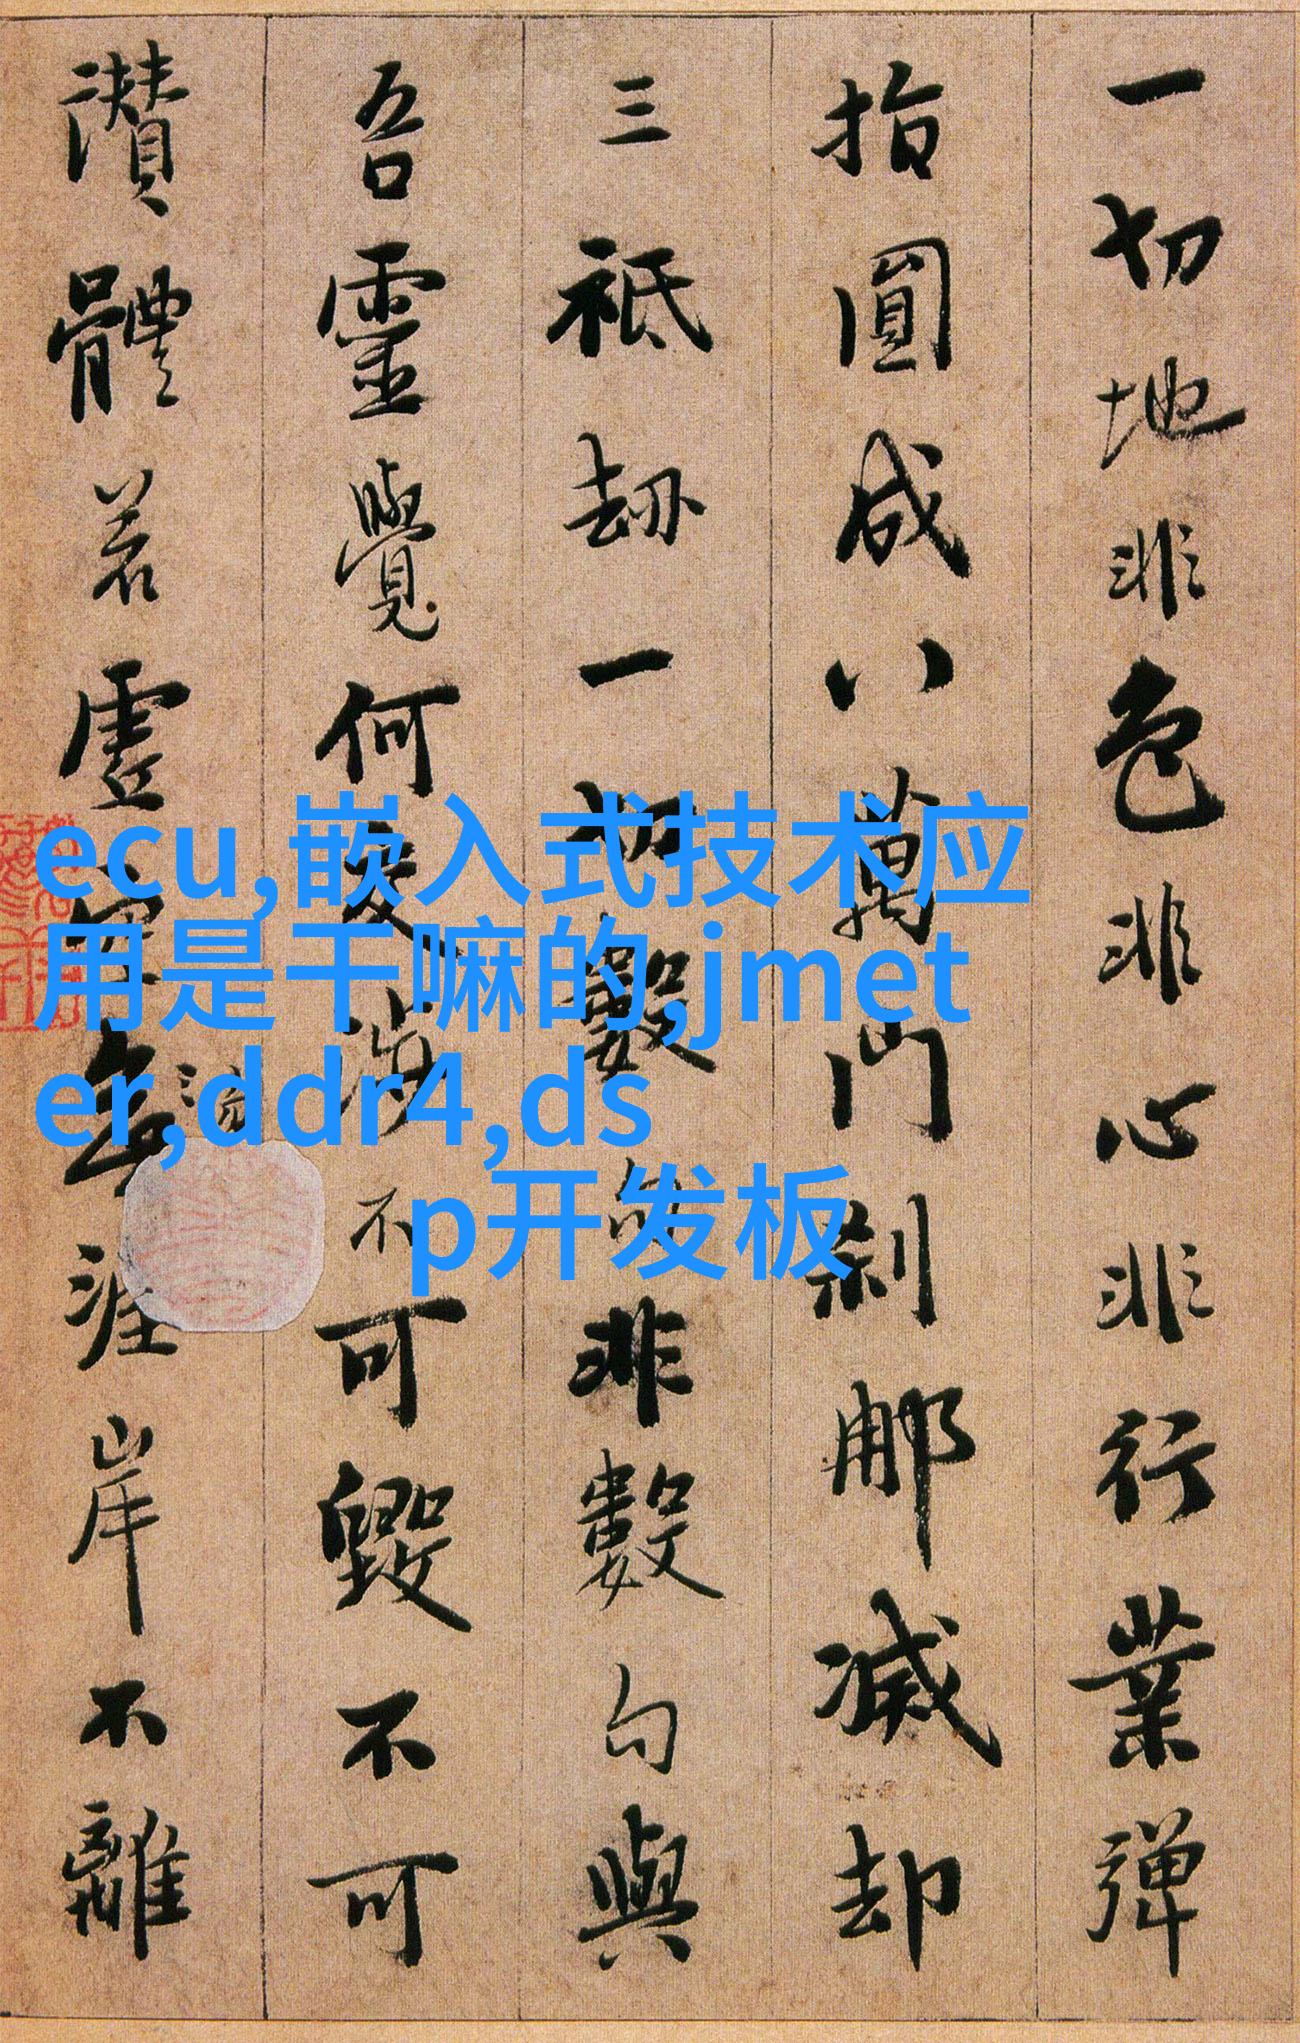 一切地非色非心非行業彈
指圓成八萬門刹那滅却
三祇劫一切數句非數句與
吾靈覺何交涉不可毀不可
讚體若虛空無涯岸不離
ecu,嵌入式技术应
用是干嘛的,jmet
er,ddr4,ds
p开发板